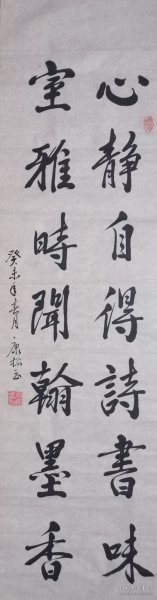 心靜自得詩書味
室雅時聞翰墨香
癸未年春月康松书